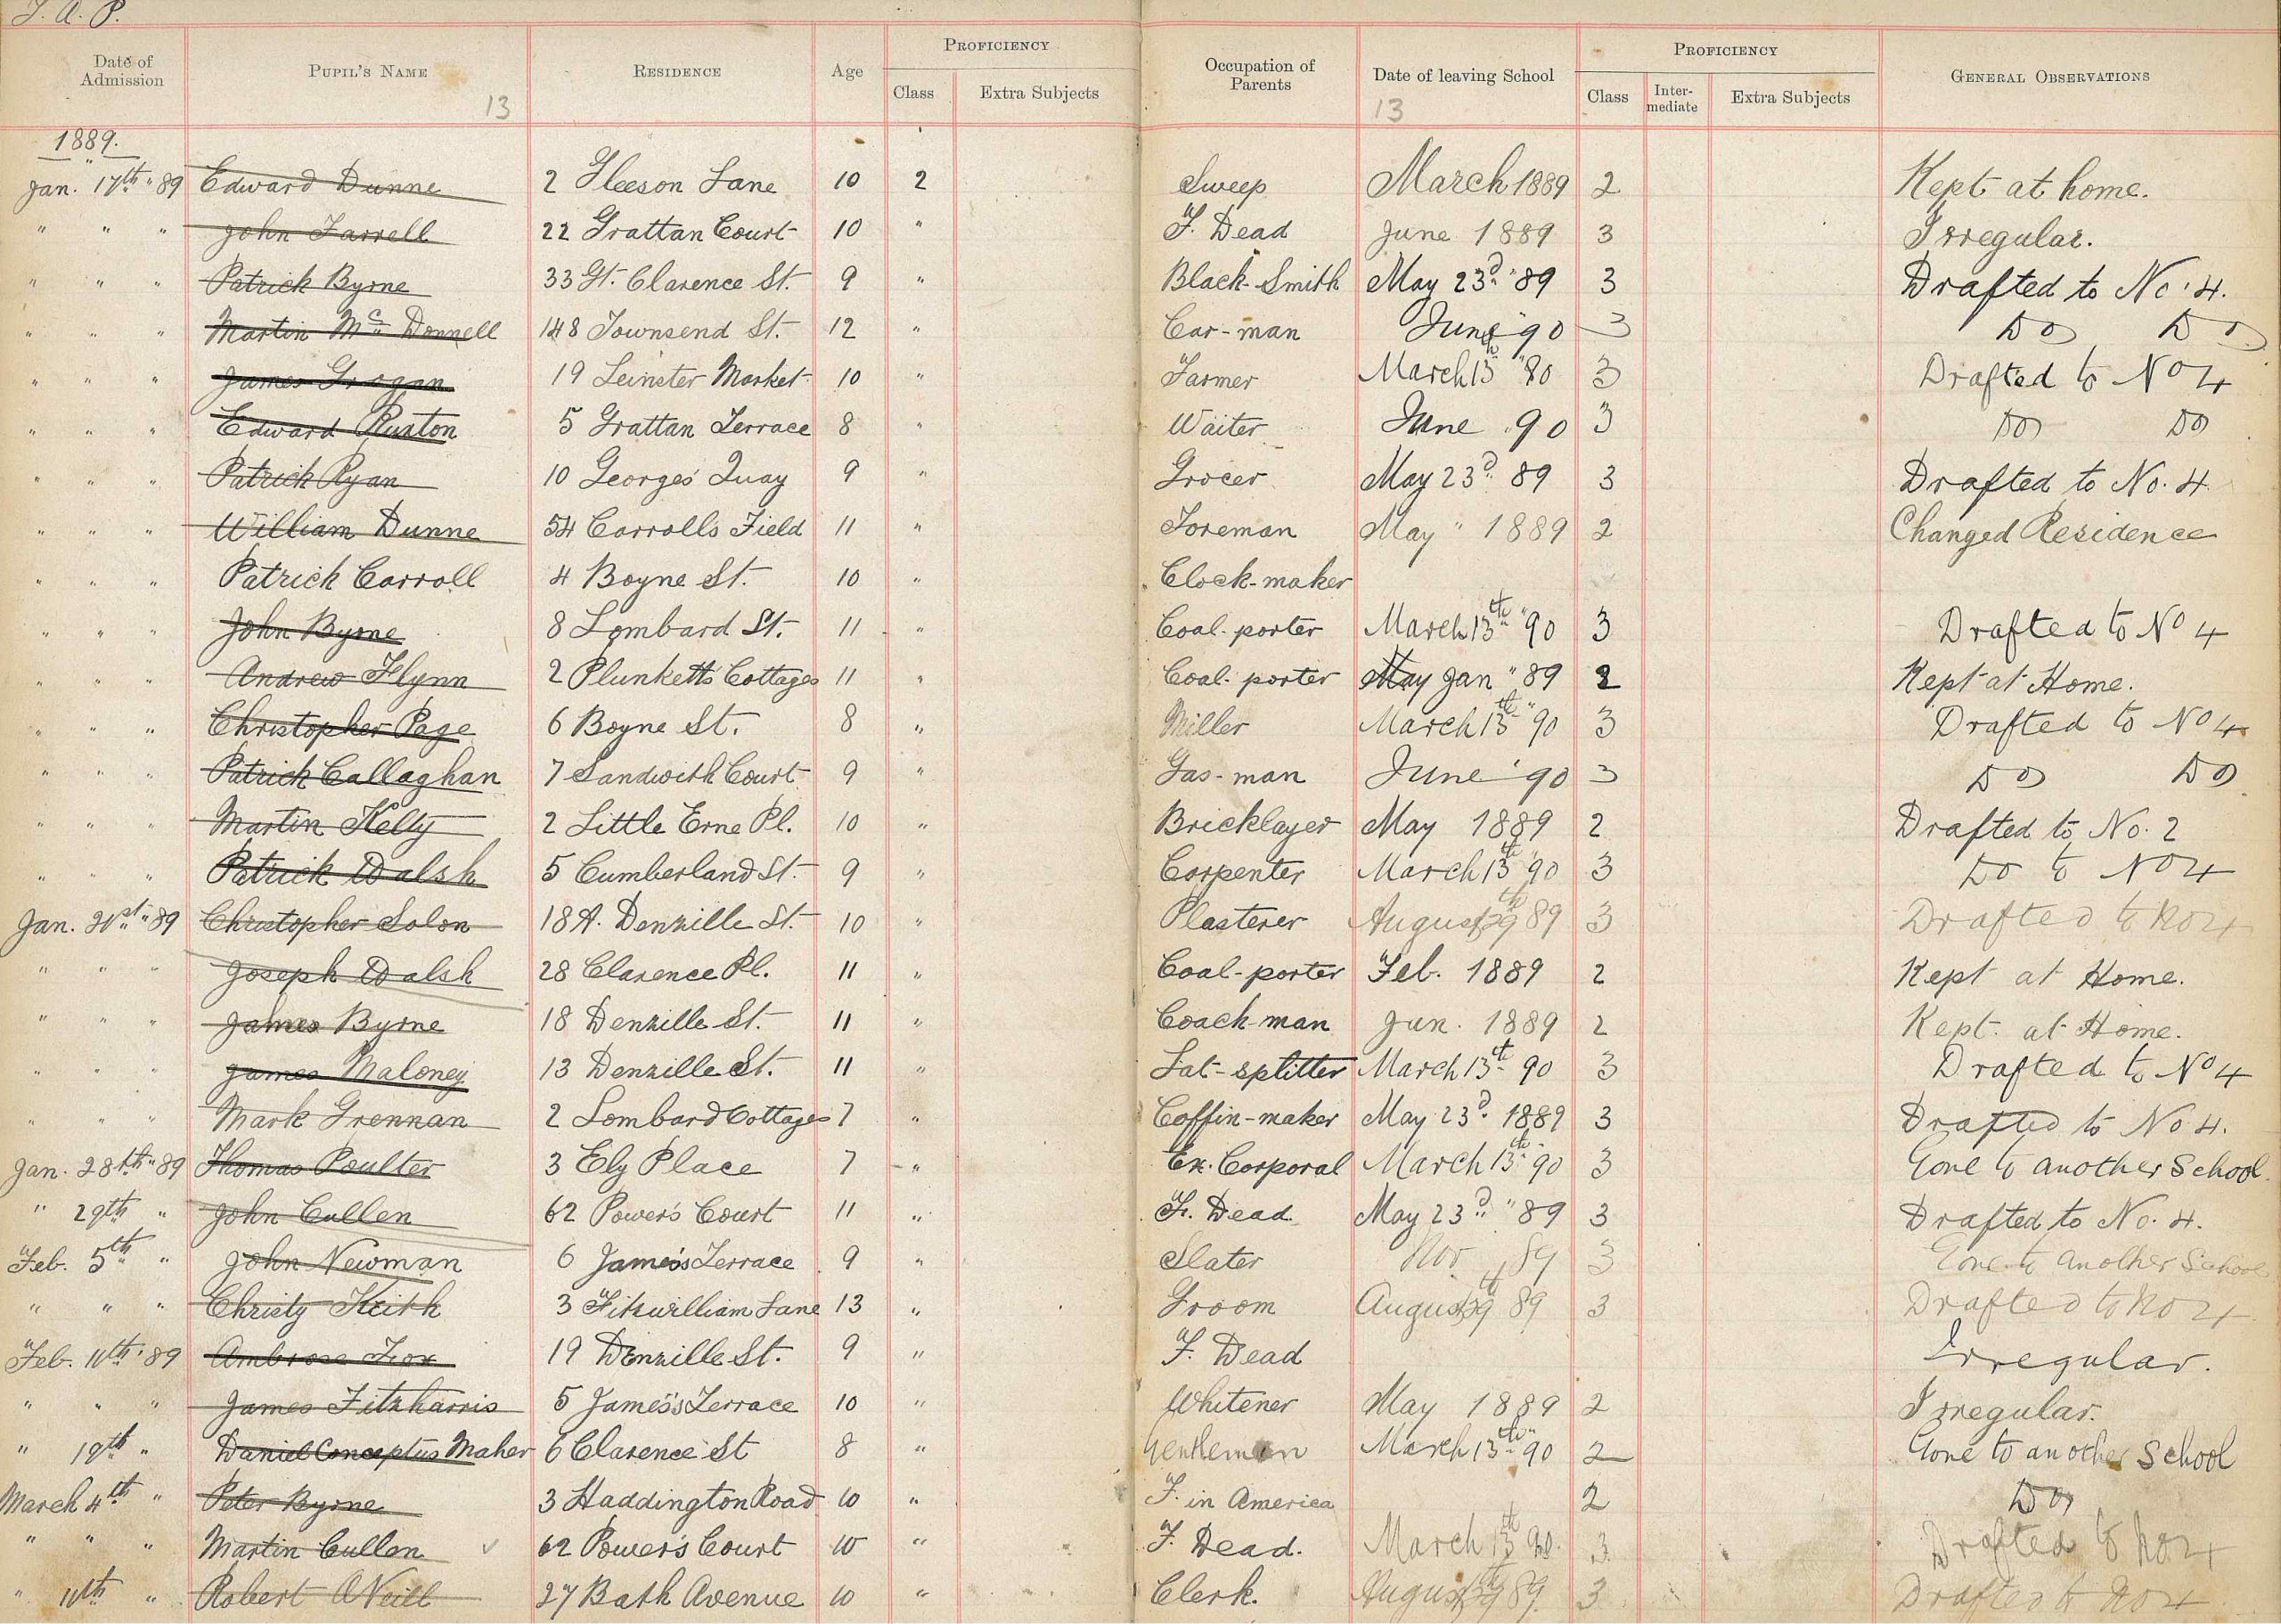 J. A. P.
Date of Admission PUPIL'S NAME RESIDENCE Age PROFICIENCY Class Extra Subjects Occupation of Parents Date of leaving School PROFICIENCY Class Inter-mediate Extra Subjects GENERAL OBSERVATIONS
13 13
1889.
Jan. 17th " 89 Edward Dunne 2 Gleeson Lane 10 2 Sweep March 1889 2 Kept at home.
" " " John Farrell 22 Grattan Court 10 " F. Dead June 1889 3 Irregular.
" " " Patrick Byrne 33 Gt. Clarence St. 9 " Black-Smith May 23d " 89 3 Drafted to No. 4.
" " " Martin Mc Donnell 148 Townsend St. 12 " Car-man June " 90 3 Do Do
" " " James Grogan 19 Leinster Market 10 " Farmer March 13th " 80 3 Drafted to No 4
" " " Edward Ruxton 5 Grattan Terrace 8 " Waiter June " 90 3 Do Do
" " " Patrick Ryan 10 Georges' Quay 9 " Grocer May 23d 89 3 Drafted to No. 4
" " " William Dunne 54 Carrolls Field 11 " Foreman May " 1889 2 Changed Residence
" " " Patrick Carroll 4 Boyne St. 10 " Clock-maker
" " " John Byrne 8 Lombard St. 11 " Coal-porter March 13th " 90 3 Drafted to No 4
" " " Andrew Flynn 2 Plunketts Cottages 11 " Coal-porter May Jan " 89 2 Kept at Home.
" " " Christopher Page 6 Boyne St. 8 " Miller March 13th " 90 3 Drafted to No 4
" " " Patrick Callaghan 7 Sandwith Court 9 " Gas-man June " 90 3 Do Do
" " " Martin Kelly 2 Little Erne Pl. 10 " Bricklayer May 1889 2 Drafted to No. 2
" " " Patrick Walsh 5 Cumberland St. 9 " Carpenter March 13th " 90 3 Do to No 4
Jan. 21st " 89 Christopher Solon 18A. Denzille St. 10 " Plasterer August 29th 89 3 Drafted to No 4
" " " Joseph Walsh 28 Clarence Pl. 11 " Coal-porter Feb. 1889 2 Kept at Home.
" " " James Byrne 18 Denzille St. 11 " Coach-man Jan. 1889 2 Kept at Home.
" " " James Maloney 13 Denzille St. 11 " Lat-splitter March 13th 90 3 Drafted to No 4
" " " Mark Grennan 2 Lombard Cottages 7 " Coffin-maker May 23d 1889 3 Drafted to No 4.
Jan. 28th " 89 Thomas Poulter 3 Ely Place 7 " Ex. Corporal March 13th " 90 3 Gone to another School.
" 29th " John Cullen 62 Power's Court 11 " F. Dead May 23d " 89 3 Drafted to No. 4.
Feb. 5th " John Newman 6 James's Terrace 9 " Slater Nov 89 3 Gone to another School
" " " Christy Keith 3 Fitzwilliam Lane 13 " Groom August 29th 89 3 Drafted to No 4
Feb. 11th " 89 Ambrose Fox 19 Denzille St. 9 " F. Dead Irregular.
" " " James Fitzharris 5 James's Terrace 10 " Whitener May 1889 2 Irregular.
" 19th " Daniel Conceptus Maher 6 Clarence St 8 " Gentleman March 13th " 90 2 Gone to another School
March 4th " Peter Byrne 3 Haddington Road 10 " F. in America 2 Do
" " " Martin Cullen 62 Power's Court 10 " F. Dead. March 13th 90. 3 Drafted to No 4
" 11th " Robert O'Neill 27 Bath Avenue 10 " Clerk. August 29th 89. 3 Drafted to No 4